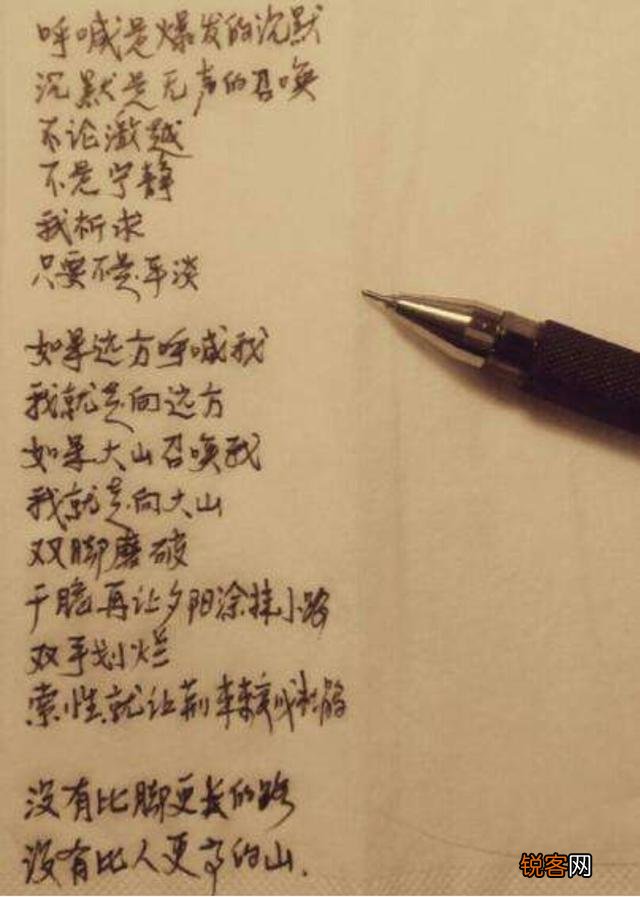 呼喊是爆发的沉默
沉默是无声的召唤
不论激越
还是宁静
我祈求
只要不是平淡
如果远方呼喊我
我就走向远方
如果大山召唤我
我就走向大山
双脚磨破
干脆再让夕阳涂抹小路
双手划烂
索性就让荆棘变成杜鹃
没有比脚更长的路
没有比人更高的山.
锐客网